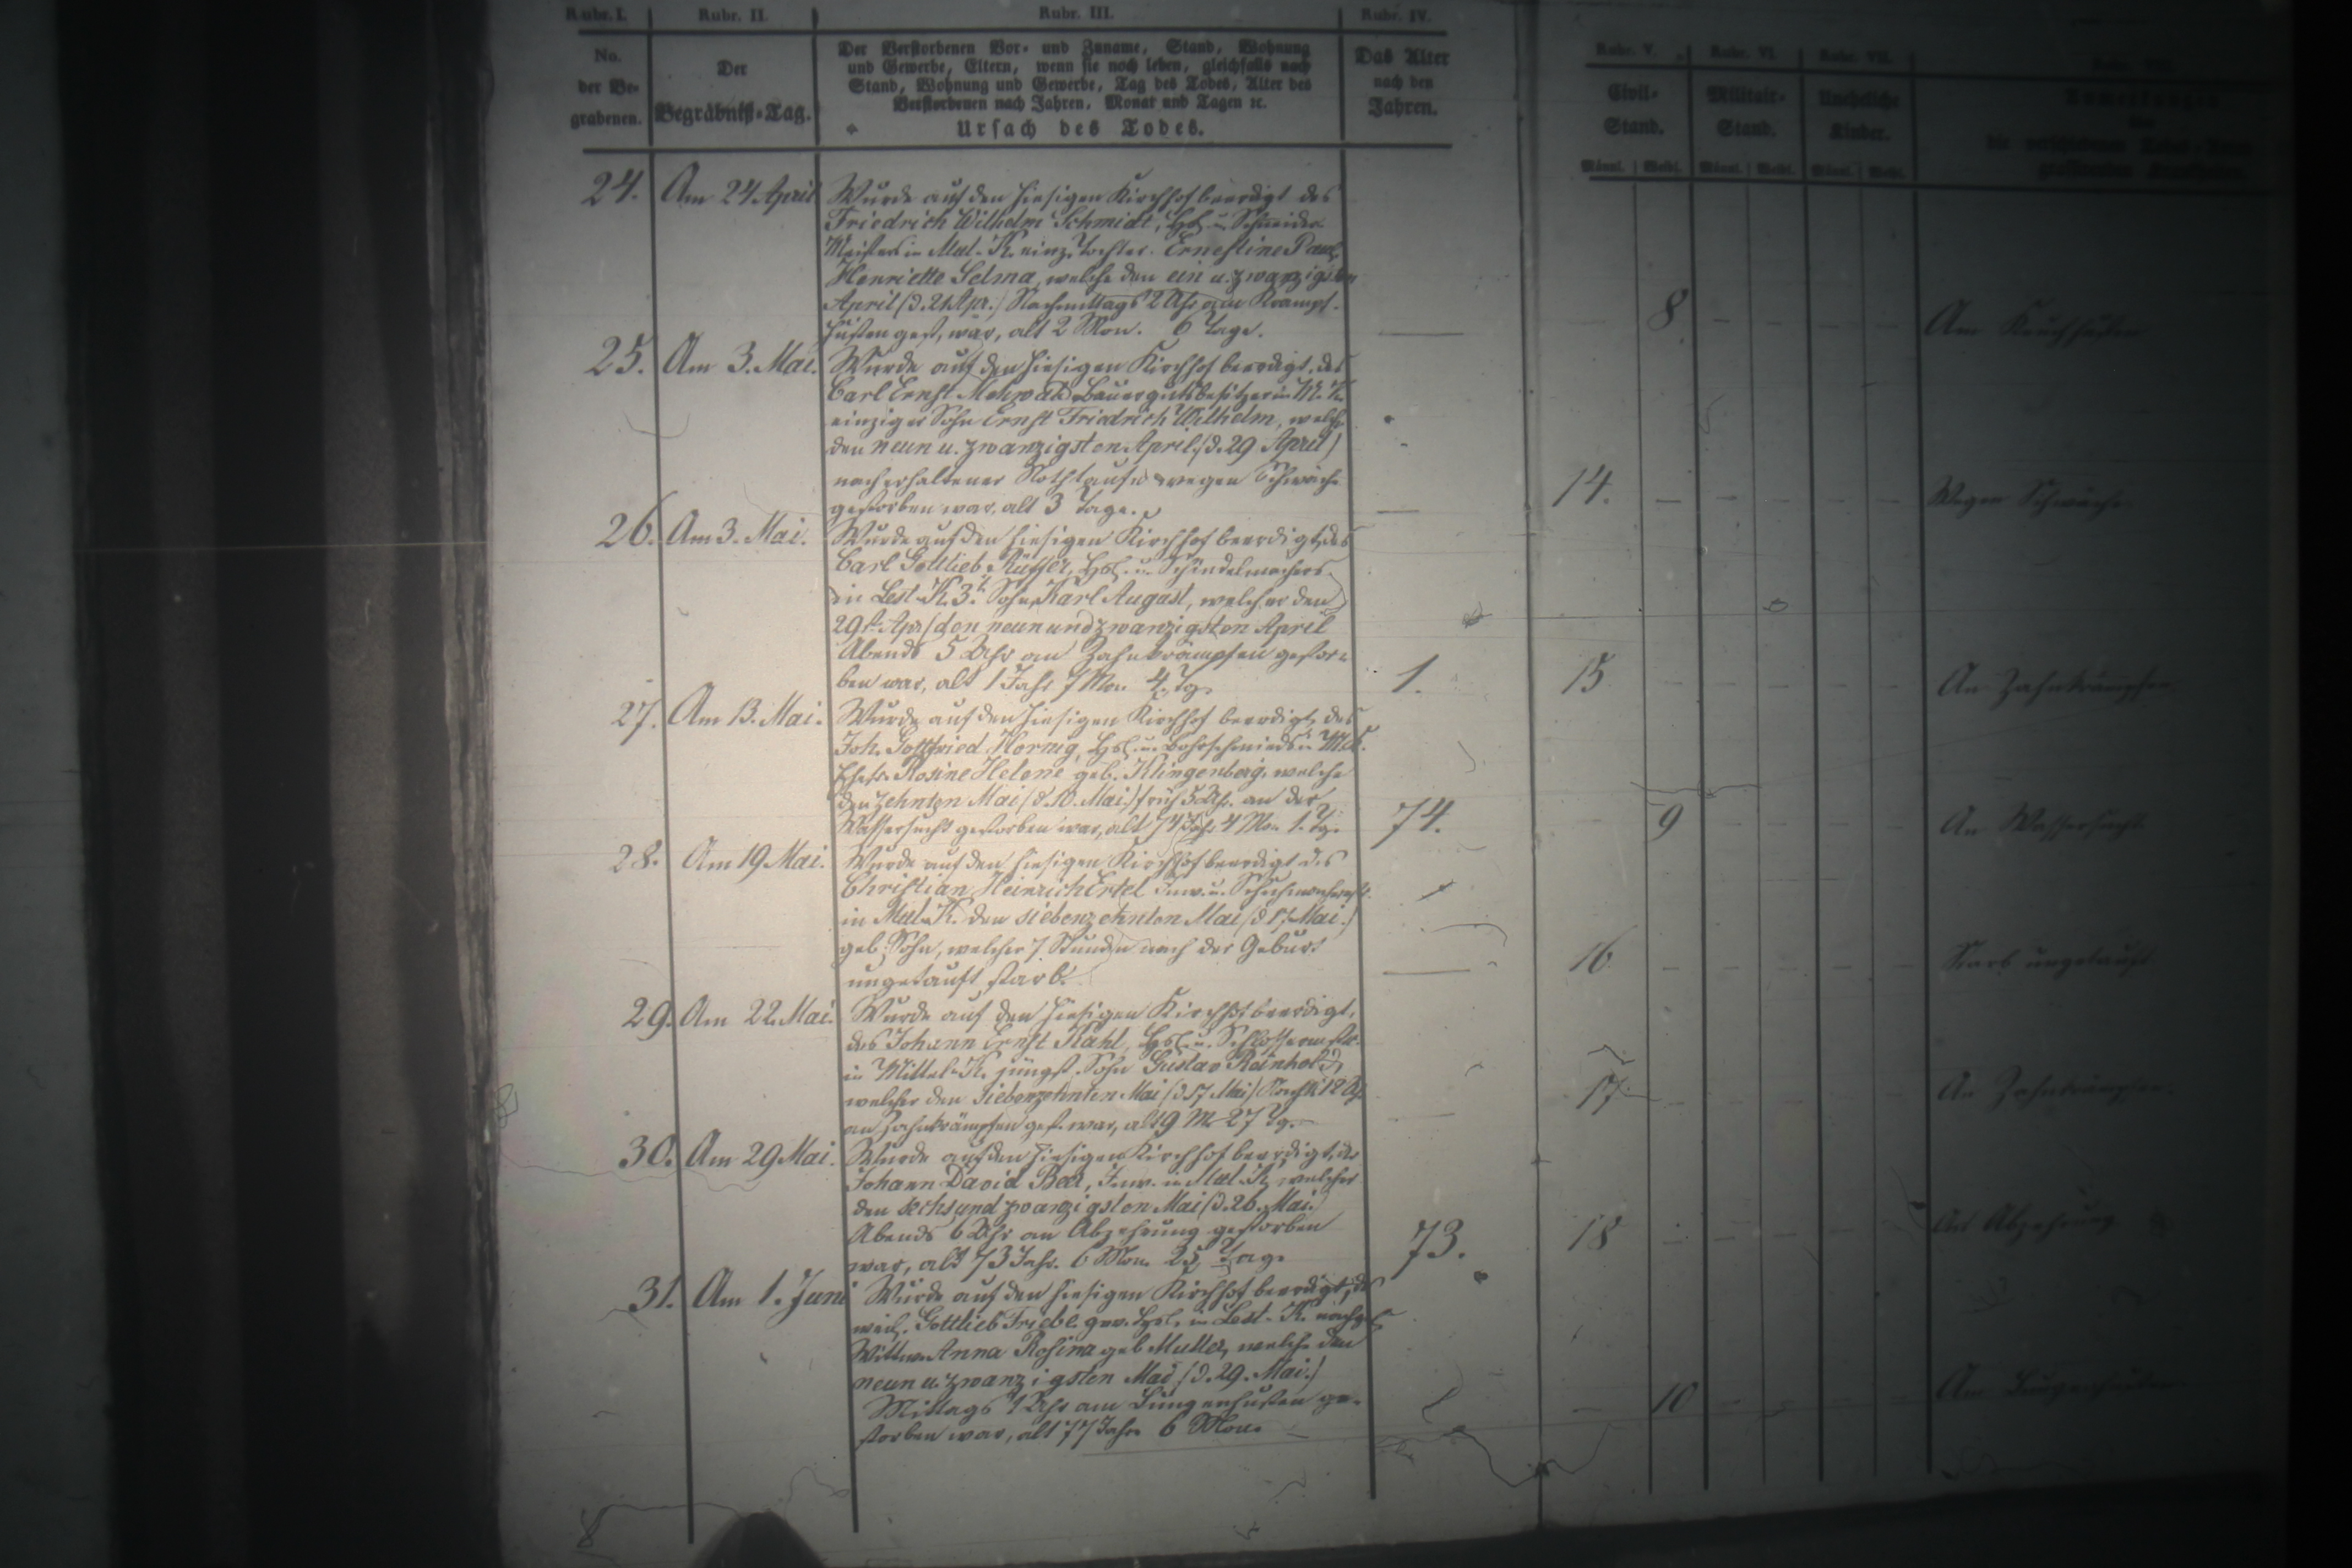 Rubr. I. Rubr. II. Rubr. III. Rubr. IV. Rubr. V. Rubr. VI. Rubr. VII.
No. der Be- grabenen.
Der Begräbniß-Tag.
Der Verstorbenen Vor- und Zuname, Stand, Wohnung
und Gewerbe, Eltern, wenn sie noch leben, gleichfalls nach
Stand, Wohnung und Gewerbe, Tag des Todes, Alter des
Verstorbenen nach Jahren, Monat und Tagen ꝛc.
Ursach des Todes.
Das Alter nach den Jahren.
Civil- Stand.
Militair- Stand.
Uneheliche Kinder.
Männl. Weibl. Männl. Weibl. Männl. Weibl.
24. Am 24 April Wurde auf den hiesigen Kirchhof beerdigt des
Friedrich Wilhelm Schmidt, Hsl. u. Schneider
Meisters in K. einz. Tochter Ernestine
Henriette Selma, welche den ein u. zwanzigsten
April (d. 21 Apr.) Nachmittags 2 Uhr am Krampf-
husten gest. war, alt 2 Mon. 6 Tage. — 8 Am
25. Am 3. Mai. Wurde auf den hiesigen Kirchhof beerdigt, des
Carl Ernst Bauergutsbesitzer in
einziger Sohn Ernst Friedrich Wilhelm, welcher
den neun u. zwanzigsten April (d. 29 April)
nach erhaltener Nothtaufe wegen Schwäche
gestorben war, alt 3 Tage. — 14. Wegen Schwäche
26. Am 3. Mai. Wurde auf den hiesigen Kirchhof beerdigt, des
Carl Gottlieb Hsl. u. Schindelmachers
in K. 3r Sohn Karl August, welcher den
29st. Apr (den neunundzwanzigsten April
Abends 5 Uhr an Zahnkrämpfen gestor-
ben war, alt 1 Jahr 7 Mon 4. Tg. 1. 15 An Zahnkrämpfen
27. Am 13. Mai. Wurde auf den hiesigen Kirchhof beerdigt, des
Joh. Gottfried Hornig, Hsl. u.
Ehefr. Rosine Helene geb. Klingenberg, welche
den zehnten Mai (d. 10. Mai.) früh 5 Uhr. an der
Wassersucht gestorben war, alt 74 Jahr 4 Mon 1. Tg. 74. 9 An Wassersucht
28. Am 19 Mai. Wurde auf den hiesigen Kirchhof beerdigt des
Christian Heinrich Ertel Inw. u.
in K. den siebenzehnten Mai (d 17. Mai.)
geb. Sohn, welcher 7 Stunden nach der Geburt
ungetauft starb. — 16 Starb ungetauft
29. Am 22. Mai. Wurde auf den hiesigen Kirchhof beerdigt,
des Johann Ernst Kahl, Hsl. u.
in Mittel-K. jüngst. Sohn Gustav Reinhold,
welcher den siebenzehnten Mai (d 17 Mai) 12 Uhr
an Zahnkrämpfen gest. war, alt 9 M 27 Tg. — 17 An Zahnkrämpfen
30. Am 29 Mai. Wurde auf den hiesigen Kirchhof beerdigt, der
Johann David Inw. in K, welcher
den sechsundzwanzigsten Mai (d. 26. Mai.)
Abends 6 Uhr an Abzehrung gestorben
war, alt 73 Jahr. 6 Mon. 25 Tage 73. 18 An Abzehrung
31. Am 1. Juni Wurde auf den hiesigen Kirchhof beerdigt, des
weil. Gottlieb Friebe gew. Hsl. in K.
Wittwe Anna Rosina geb Müller, welche den
neun u. zwanzigsten Mai (d. 29. Mai.)
Mittags 1 Uhr am Lungenhusten ge-
storben war, alt 77 Jahr 6 Mon. 10 Am Lungenhusten